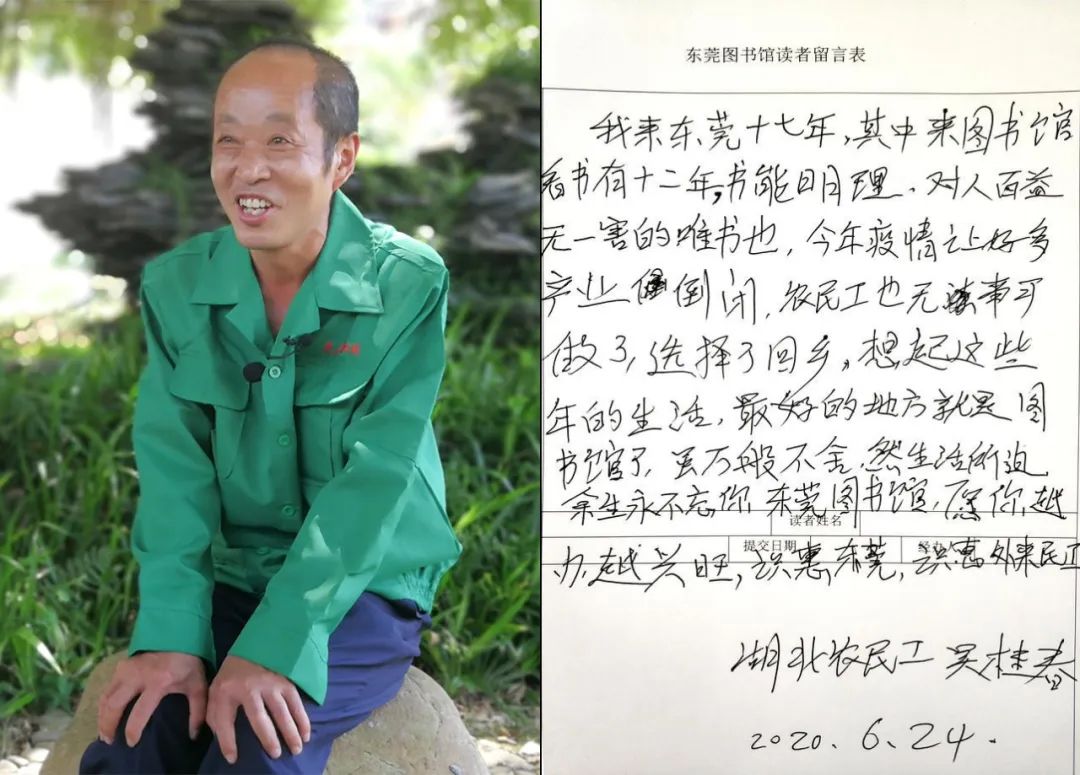 东莞图书馆读者留言表
我来东莞十七年，其中来图书馆
看书有十二年，书能明理、对人百益
无一害的唯书也，今年疫情让好多
产业倒闭，农民工也无事可
做了，选择了回乡。想起这些
年的生活，最好的地方就是图
书馆了，虽万般不舍，然生活所迫，
余生永不忘你，东莞图书馆，愿你越
读者姓名
提交日期
办越兴旺，识惠东莞，识惠外来民工
湖北农民工 吴桂春
2020.6.24.